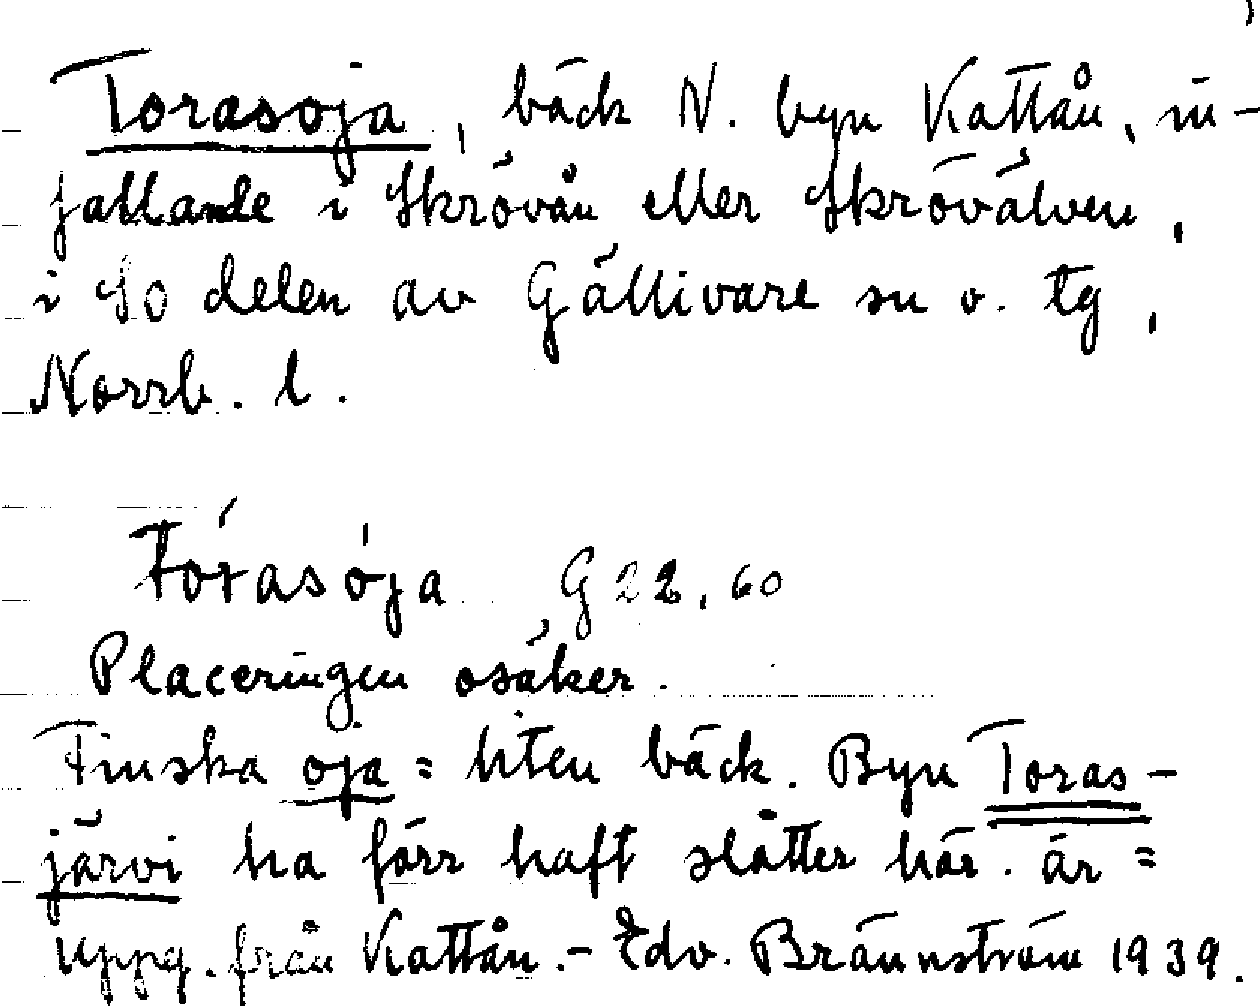 Torasoja, bäck N. byn Kattån, in-
fallande i Skrövån eller Skrövälven,
i SO delen av Gällivare sn o. tg,
Norrb. l.
tórasója G 22, 60
Placeringen osäker.
Finska oja = liten bäck. Byn Toras-
järvi ha förr haft slåtter här. är =
uppg. från Kattån. - Edv. Brännström 1939.